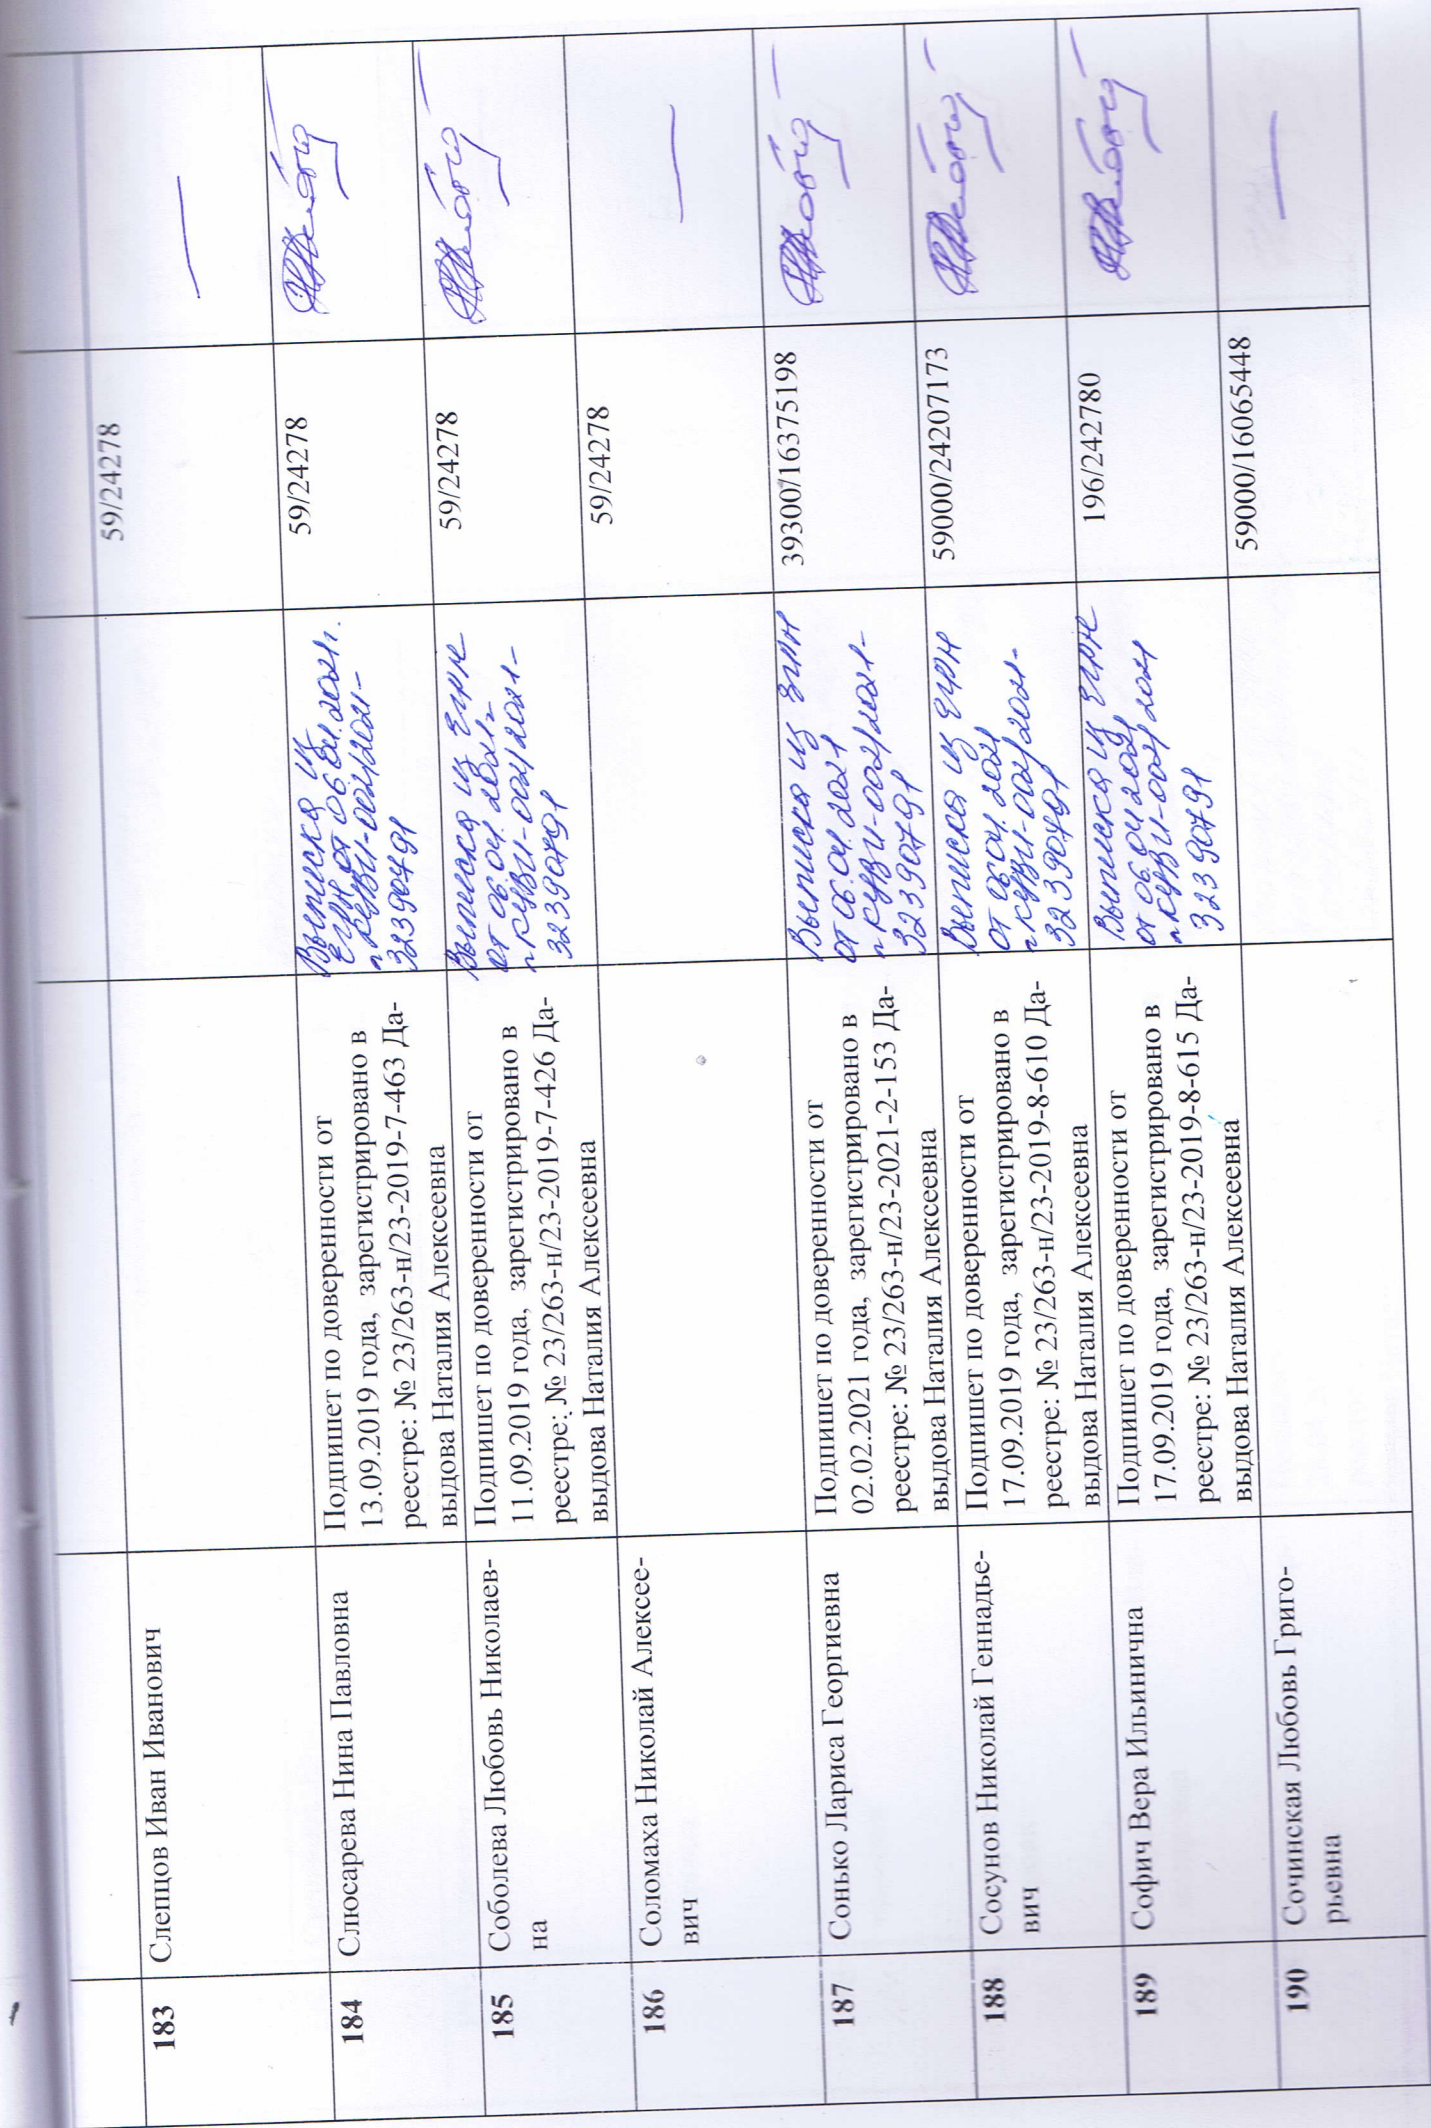 183
Слепцов Иван Иванович
59/24278
184
Слюсарева Нина Павловна
Подпишет по доверенности от
13.09.2019 года, зарегистрировано в
реестре: № 23/263-н/23-2019-7-463 Да-
выдова Наталия Алексеевна
Выписка из
ЕГРН от 06.04.2021г.
КУВИ-002/2021-
32390791
59/24278
185
Соболева Любовь Николаев-
на
Подпишет по доверенности от
11.09.2019 года, зарегистрировано в
реестре: № 23/263-н/23-2019-7-426 Да-
выдова Наталия Алексеевна
Выписка из ЕГРН
от 06.04.2021г
КУВИ-002/2021-
32390791
59/24278
186
Соломаха Николай Алексее-
вич
59/24278
187
Сонько Лариса Георгиевна
Подпишет по доверенности от
02.02.2021 года, зарегистрировано в
реестре: № 23/263-н/23-2021-2-153 Да-
выдова Наталия Алексеевна
Выписка из ЕГРН
от 06.04.2021
КУВИ-002/2021-
32390791
39300/16375198
188
Сосунов Николай Геннадье-
вич
Подпишет по доверенности от
17.09.2019 года, зарегистрировано в
реестре: № 23/263-н/23-2019-8-610 Да-
выдова Наталия Алексеевна
Выписка из ЕГРН
от 06.04.2021
КУВИ-002/2021-
32390791
59000/24207173
189
Софич Вера Ильинична
Подпишет по доверенности от
17.09.2019 года, зарегистрировано в
реестре: № 23/263-н/23-2019-8-615 Да-
выдова Наталия Алексеевна
Выписка из ЕГРН
от 06.04.2021
КУВИ-002/2021
32390791
196/242780
190
Сочинская Любовь Григо-
рьевна
59000/16065448